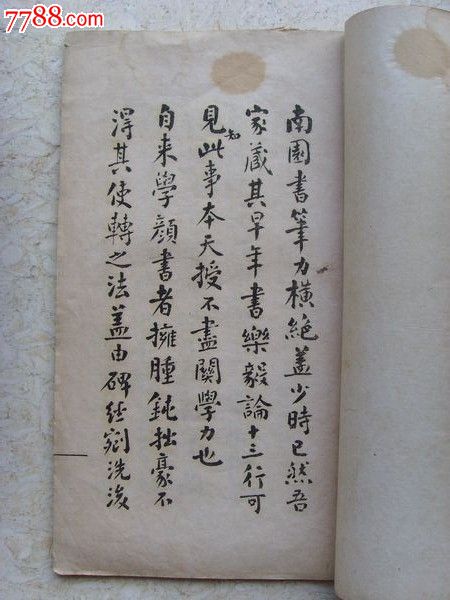 7788.com
南園書筆力橫絕蓋少時已然吾
家藏其早年書樂毅論十三行可
見知此事本天授不盡關學力也
自来學顏書者擁腫鈍拙豪不
淂其使轉之法蓋由碑經剜洗浚